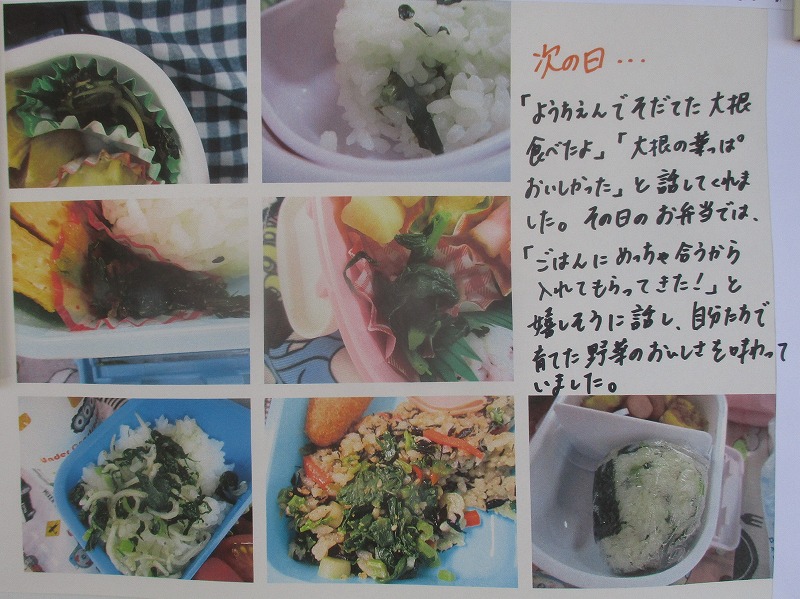 次の日...
「ようちえんでそだてた大根
食べたよ」「大根の葉っぱ
おいしかった」と話してくれま
した。その日のお弁当では、
「ごはんにめっちゃ合うから
入れてもらってきた！」と
嬉しそうに話し、自分たちで
育てた野菜のおいしさを味わって
いました。